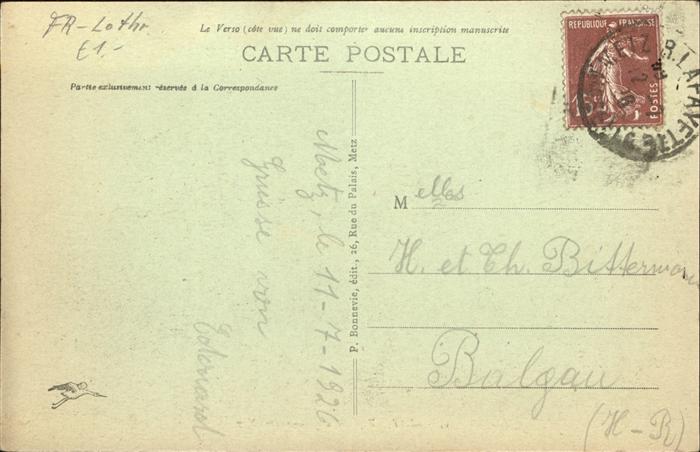 FR-Lothr.
€1.-
Le Verso (côté vue) ne doit comporter aucune inscription manuscrite
CARTE POSTALE
Partie exclusivement réservée à la Correspondance
Metz, le 11-7-1926
Grüsse von
Edouard
P. Bonnevie, édit., 26, Rue du Palais, Metz
REPUBLIQUE FRANÇAISE
POSTES
METZ R. LAFAYETTE
M elles
H. et Th. Bitterman
Balgau
(H-R)